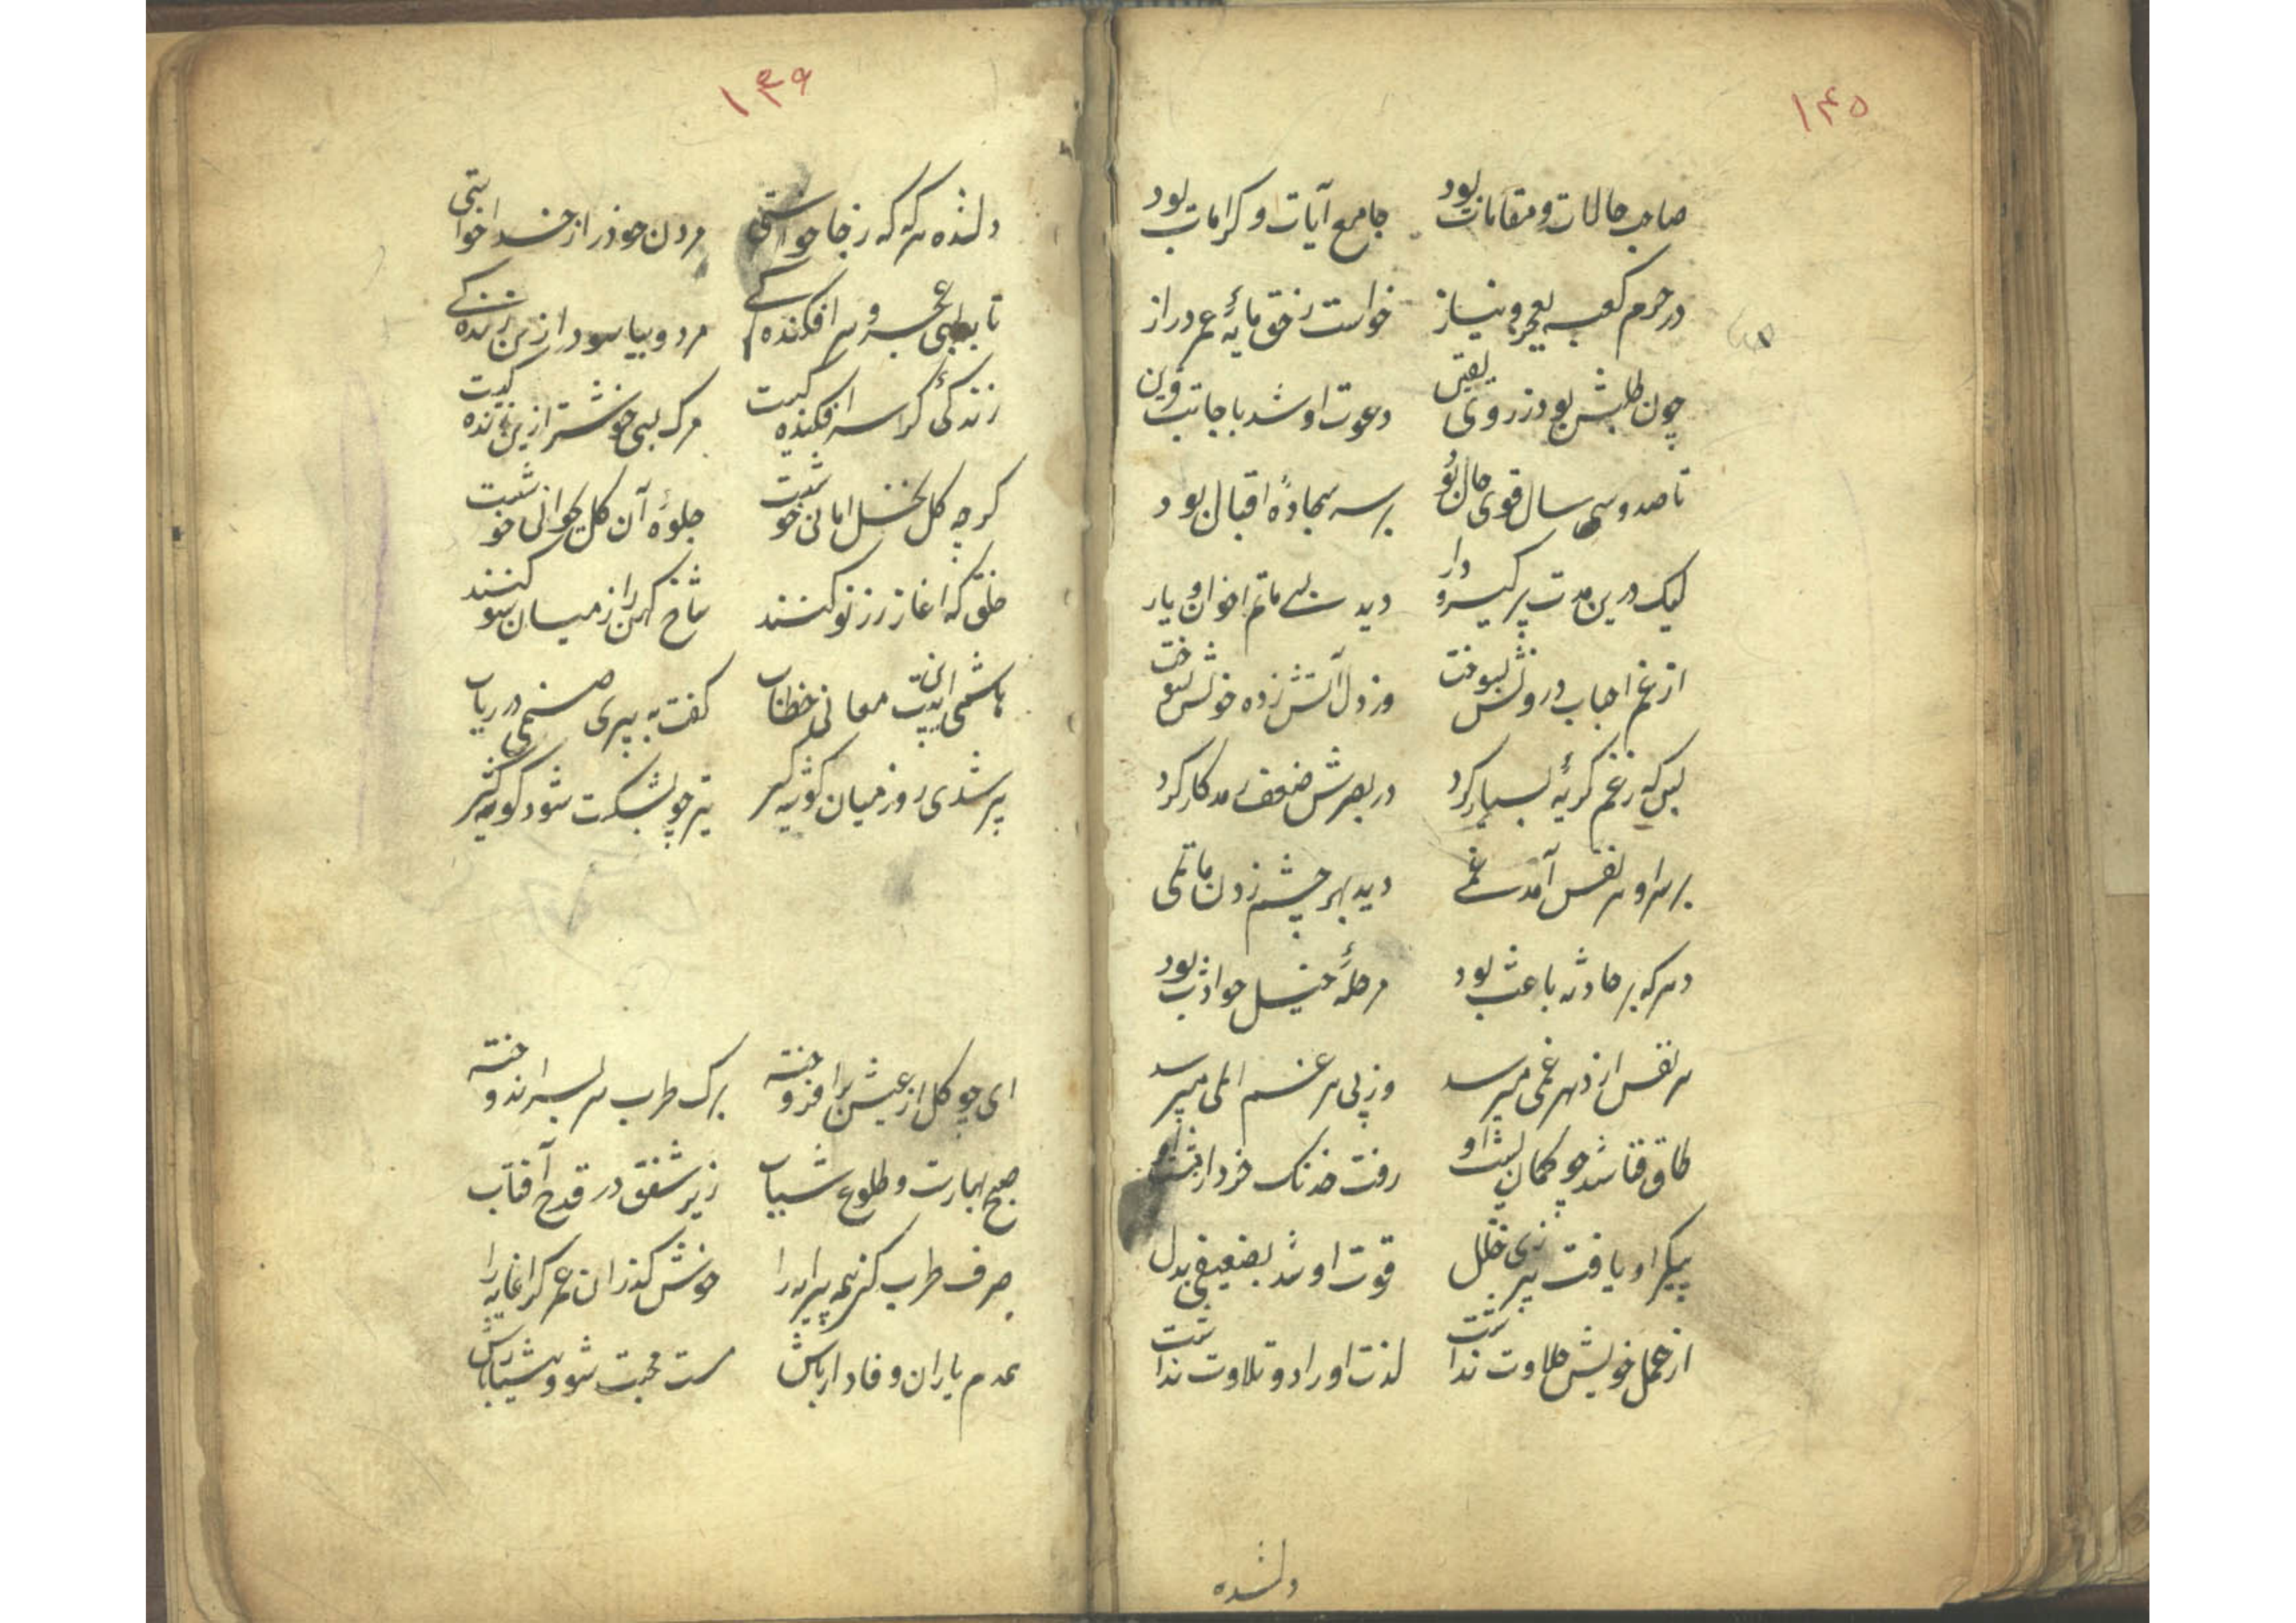 ۱۴۰
صاحب حالات و مقامات بود جامع آیات و کرامات بود
در حرم کعبه بعجز و نیاز خواست ز حق مایهٔ عمر دراز
چون طلبش بود ز روی یقین دعوت او شد باجابت قرین
تا صد و سی سال قوی حال بود بر سر سجادهٔ اقبال بود
لیک درین مدت پر گیر و دار دید بسی ماتم اخوان و یار
از غم احباب درونش بسوخت وز دل آتش زده خونش بسوخت
بس که ز غم گریهٔ بسیار کرد در بصرش ضعف رمد کار کرد
بر سر او هر نفس آمد غمی دید بهر چشم زدن ماتمی
دهر که بر حادثه باعث بود مرحلهٔ خیل حوادث بود
هر نفس از دهر غمی میرسد وز پی هر غم المی میرسد
طاق قفا شد چو کمان پشت او رفت خدنک خرد از مشت او
پیکر او یافت ز پیری خلل قوت او شد بضعیفی بدل
از عمل خویش حلاوت نداشت لذت اوراد و تلاوت نداشت
دلشده
۱۳۹
دلشده هر که که ز جا خواستی مردن خود را ز خدا خواستی
تا بطبی عجز و سر افکنده کی مرد و بیاسود ازین زنده کی
زندگی کز اسر افکنده کیست مرک بسی خوشتر ازین زنده کیست
کرچه کل نخل امانی خوشست جلوهٔ آن کل بجوانی خوشست
خلق که آغاز رز نو کنند شاخ کهن را ز میان سو کنند
هاشمی این بیت معانی خطاب کفت به پیری صنمی در ریاب
پیر شدی روز میان کوشه گیر تیر چو بشکست شود کوشه گیر
ای چو کل از عیش برافروخته برک طرب سر بسر اندوخته
صبح بهارت و طلوع شباب زیر شفق در قدح آفتاب
صرف طرب کن همه پیرایه را خوش گذران عمر گرانمایه را
همدم یاران وفادار باش مست محبت شو و هشیار باش